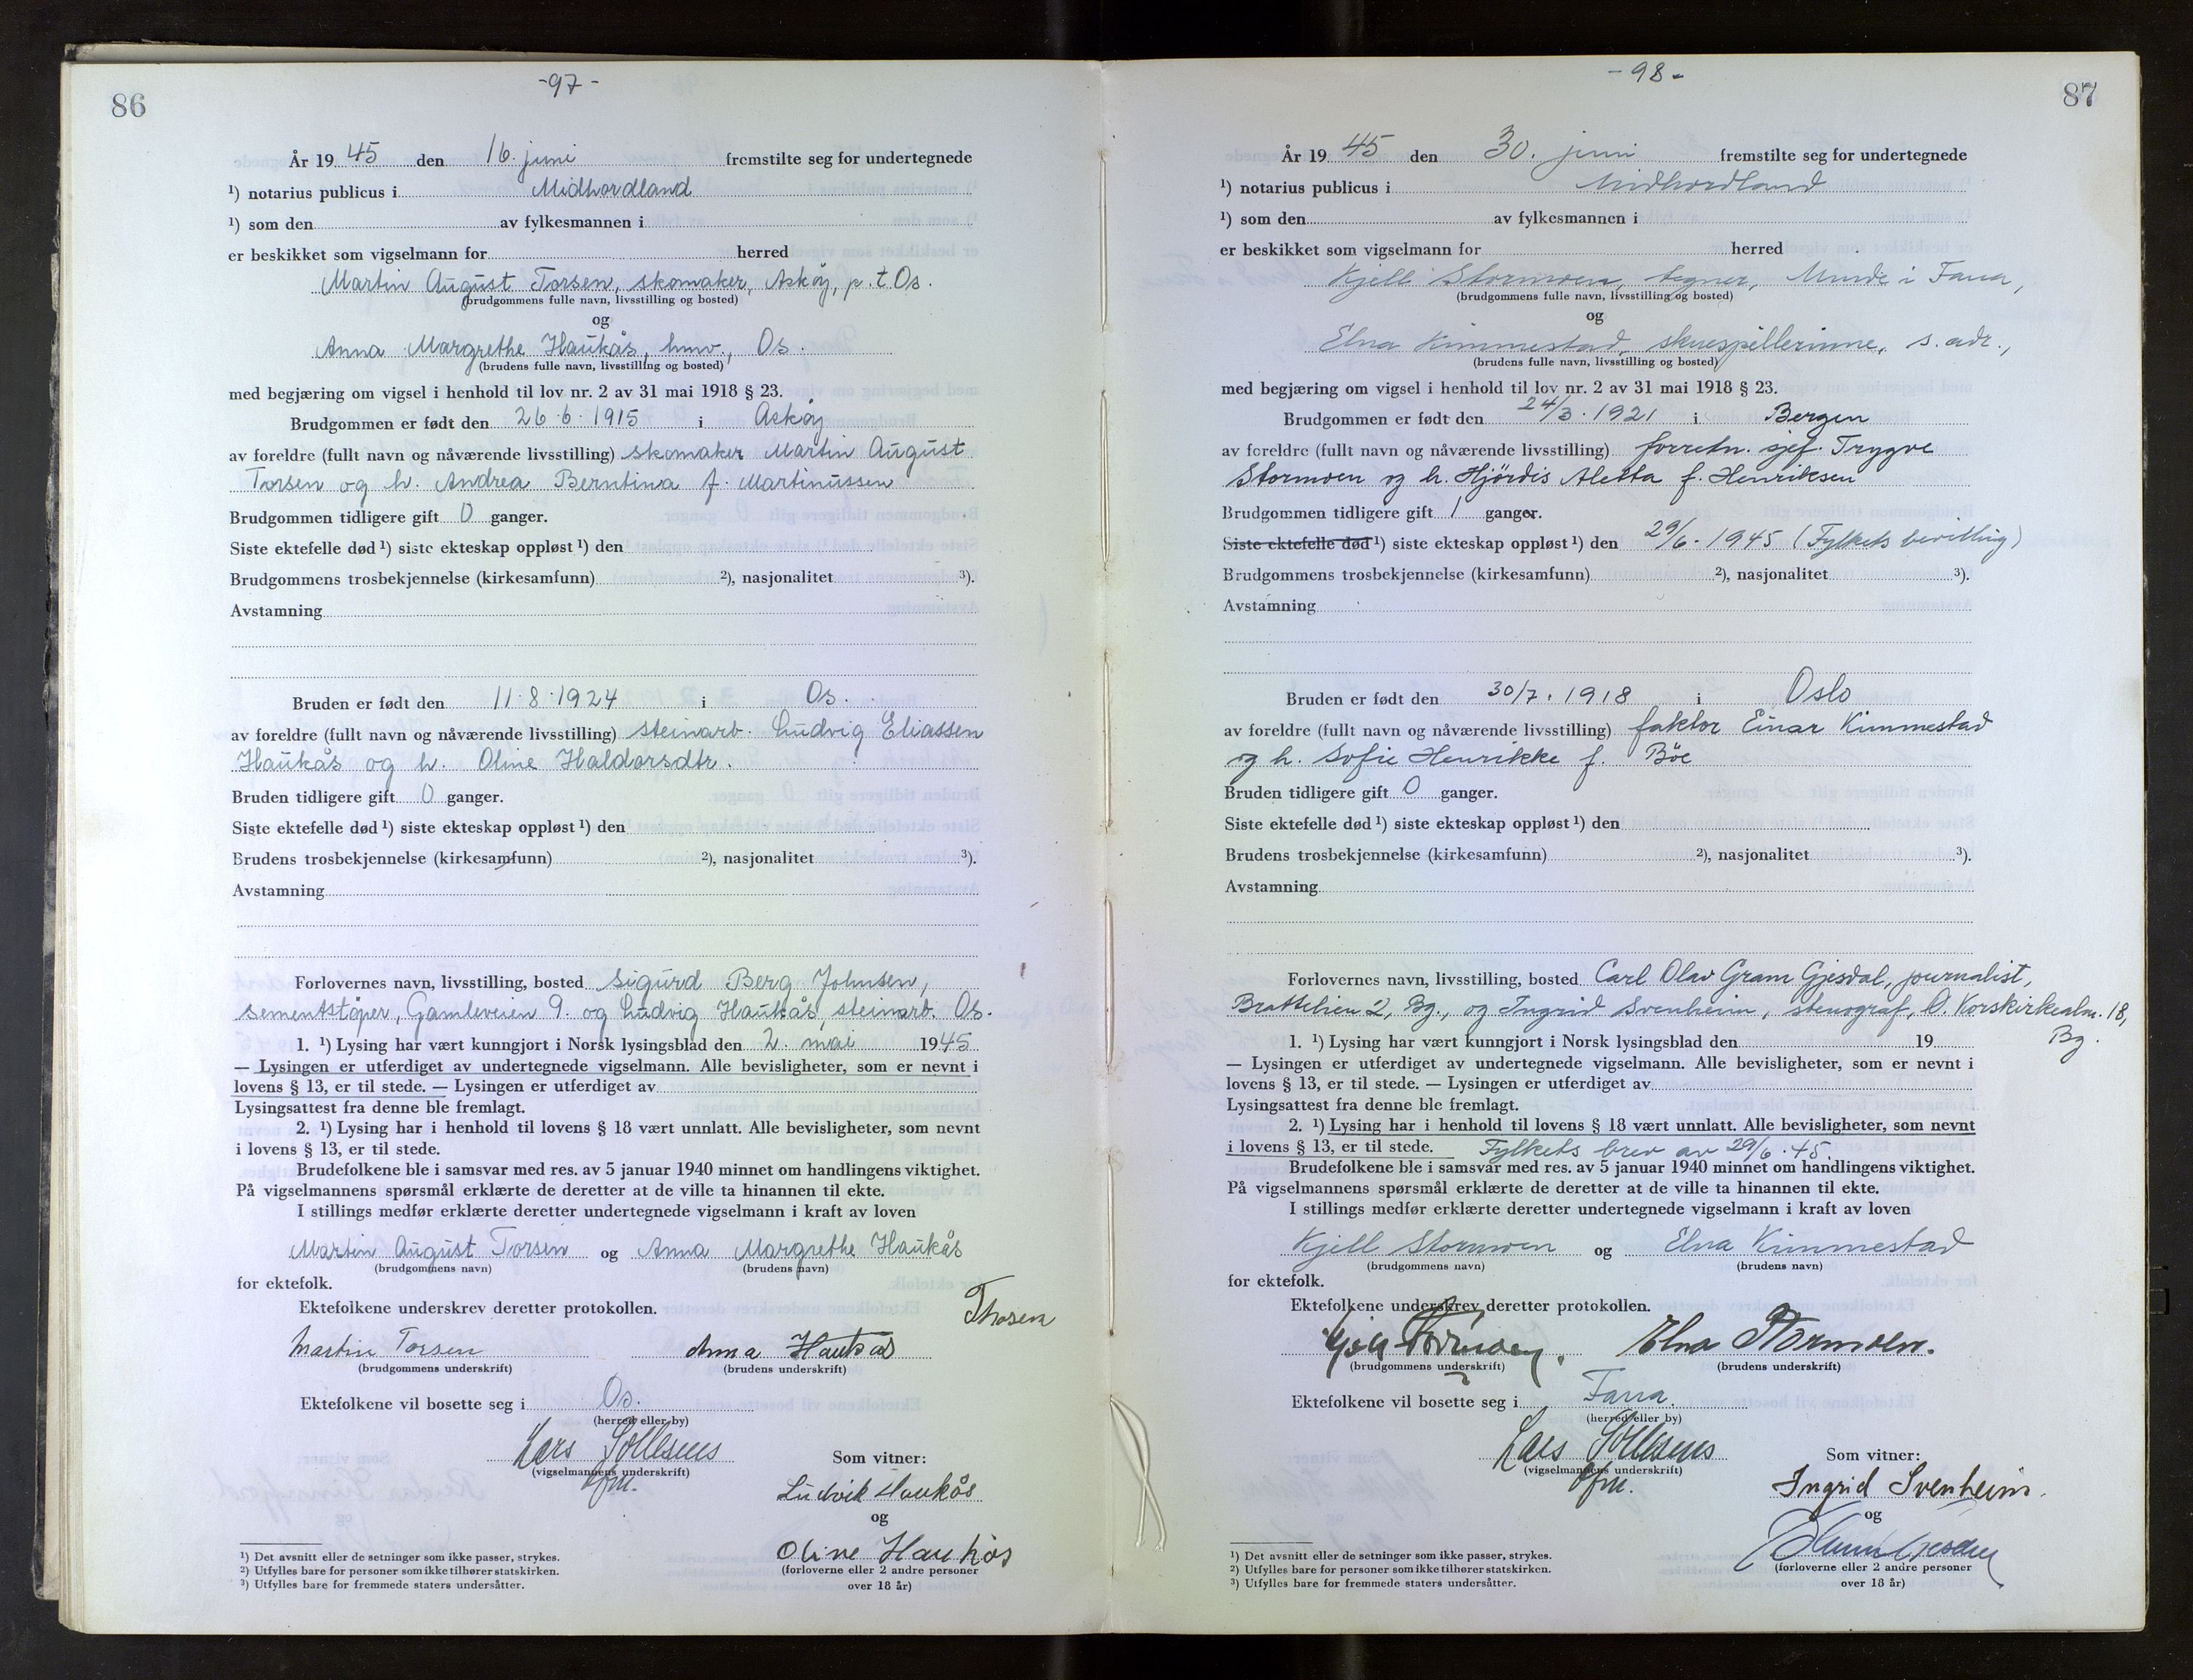 86
-97-
År 19 45 den 16. juni fremstilte seg for undertegnede
¹) notarius publicus i Midhordland
¹) som den av fylkesmannen i
er beskikket som vigselmann for herred
Martin August Torsen, skomaker, Askøy, p. t. Os.
(brudgommens fulle navn, livsstilling og bosted)
og
Anna Margrethe Haukås, hmv., Os.
(brudens fulle navn, livsstilling og bosted)
med begjæring om vigsel i henhold til lov nr. 2 av 31 mai 1918 § 23.
Brudgommen er født den 26.6.1915 i Askøy
av foreldre (fullt navn og nåværende livsstilling) skomaker Martin August
Torsen og h. Andrea Berntina f. Martinussen
Brudgommen tidligere gift 0 ganger.
Siste ektefelle død ¹) siste ekteskap oppløst ¹) den
Brudgommens trosbekjennelse (kirkesamfunn) ²), nasjonalitet ³).
Avstamning
Bruden er født den 11.8.1924 i Os.
av foreldre (fullt navn og nåværende livsstilling) steinarb. Ludvig Eliassen
Haukås og h. Oline Haldorsdtr.
Bruden tidligere gift 0 ganger.
Siste ektefelle død ¹) siste ekteskap oppløst ¹) den
Brudens trosbekjennelse (kirkesamfunn) ²), nasjonalitet ³).
Avstamning
Forlovernes navn, livsstilling, bosted Sigurd Berg Johnsen,
sementstøper, Gamleveien 9. og Ludvig Haukås, steinarb. Os.
1. ¹) Lysing har vært kunngjort i Norsk lysingsblad den 2. mai 1945
— Lysingen er utferdiget av undertegnede vigselmann. Alle bevisligheter, som er nevnt i
lovens § 13, er til stede. — Lysingen er utferdiget av
Lysingsattest fra denne ble fremlagt.
2. ¹) Lysing har i henhold til lovens § 18 vært unnlatt. Alle bevisligheter, som nevnt
i lovens § 13, er til stede.
Brudefolkene ble i samsvar med res. av 5 januar 1940 minnet om handlingens viktighet.
På vigselmannens spørsmål erklærte de deretter at de ville ta hinannen til ekte.
I stillings medfør erklærte deretter undertegnede vigselmann i kraft av loven
Martin August Torsen og Anna Margrethe Haukås
(brudgommens navn) (brudens navn)
for ektefolk.
Ektefolkene underskrev deretter protokollen.
Thosen
Martin Torsen Anna Haukås
(brudgommens underskrift) (brudens underskrift)
Ektefolkene vil bosette seg i Os.
(herred eller by)
Lars Sollesnes
(vigselmannens underskrift)
Som vitner:
Ludvik Haukås
og
Oline Haukås
(forloverne eller 2 andre personer
over 18 år)
¹) Det avsnitt eller de setninger som ikke passer, strykes.
²) Utfylles bare for personer som ikke tilhører statskirken.
³) Utfylles bare for fremmede staters undersåtter.
-98-
87
År 19 45 den 30. juni fremstilte seg for undertegnede
¹) notarius publicus i Midhordland
¹) som den av fylkesmannen i
er beskikket som vigselmann for herred
Kjell Stormoen, tegner, Minde i Fana,
(brudgommens fulle navn, livsstilling og bosted)
og
Elna Kimmestad, skuespillerinne, s. adr.,
(brudens fulle navn, livsstilling og bosted)
med begjæring om vigsel i henhold til lov nr. 2 av 31 mai 1918 § 23.
Brudgommen er født den 24/3. 1921 i Bergen
av foreldre (fullt navn og nåværende livsstilling) forretn. sjef Trygve
Stormoen og h. Hjördis Aletta f. Henriksen
Brudgommen tidligere gift 1 ganger.
Siste ektefelle død ¹) siste ekteskap oppløst ¹) den 29/6. 1945 (Fylkets bevilling)
Brudgommens trosbekjennelse (kirkesamfunn) ²), nasjonalitet ³).
Avstamning
Bruden er født den 30/7. 1918 i Oslo
av foreldre (fullt navn og nåværende livsstilling) faktor Einar Kimmestad
og h. Sofie Henrikke f. Böe
Bruden tidligere gift 0 ganger.
Siste ektefelle død ¹) siste ekteskap oppløst ¹) den
Brudens trosbekjennelse (kirkesamfunn) ²), nasjonalitet ³).
Avstamning
Forlovernes navn, livsstilling, bosted Carl Olav Gram Gjesdal, journalist,
Brattlien 2, Bg., og Ingrid Svenheim, stenograf, Ö. Korskirkealm. 18,
Bg.
1. ¹) Lysing har vært kunngjort i Norsk lysingsblad den 19
— Lysingen er utferdiget av undertegnede vigselmann. Alle bevisligheter, som er nevnt i
lovens § 13, er til stede. — Lysingen er utferdiget av
Lysingsattest fra denne ble fremlagt.
2. ¹) Lysing har i henhold til lovens § 18 vært unnlatt. Alle bevisligheter, som nevnt
i lovens § 13, er til stede. Fylkets brev av 29/6. 45.
Brudefolkene ble i samsvar med res. av 5 januar 1940 minnet om handlingens viktighet.
På vigselmannens spørsmål erklærte de deretter at de ville ta hinannen til ekte.
I stillings medfør erklærte deretter undertegnede vigselmann i kraft av loven
Kjell Stormoen og Elna Kimmestad
(brudgommens navn) (brudens navn)
for ektefolk.
Ektefolkene underskrev deretter protokollen.
Kjell Stormoen. Elna Stormoen.
(brudgommens underskrift) (brudens underskrift)
Ektefolkene vil bosette seg i Fana.
(herred eller by)
Lars Sollesnes
(vigselmannens underskrift)
Som vitner:
Ingrid Svenheim.
og
(forloverne eller 2 andre personer
over 18 år)
¹) Det avsnitt eller de setninger som ikke passer, strykes.
²) Utfylles bare for personer som ikke tilhører statskirken.
³) Utfylles bare for fremmede staters undersåtter.